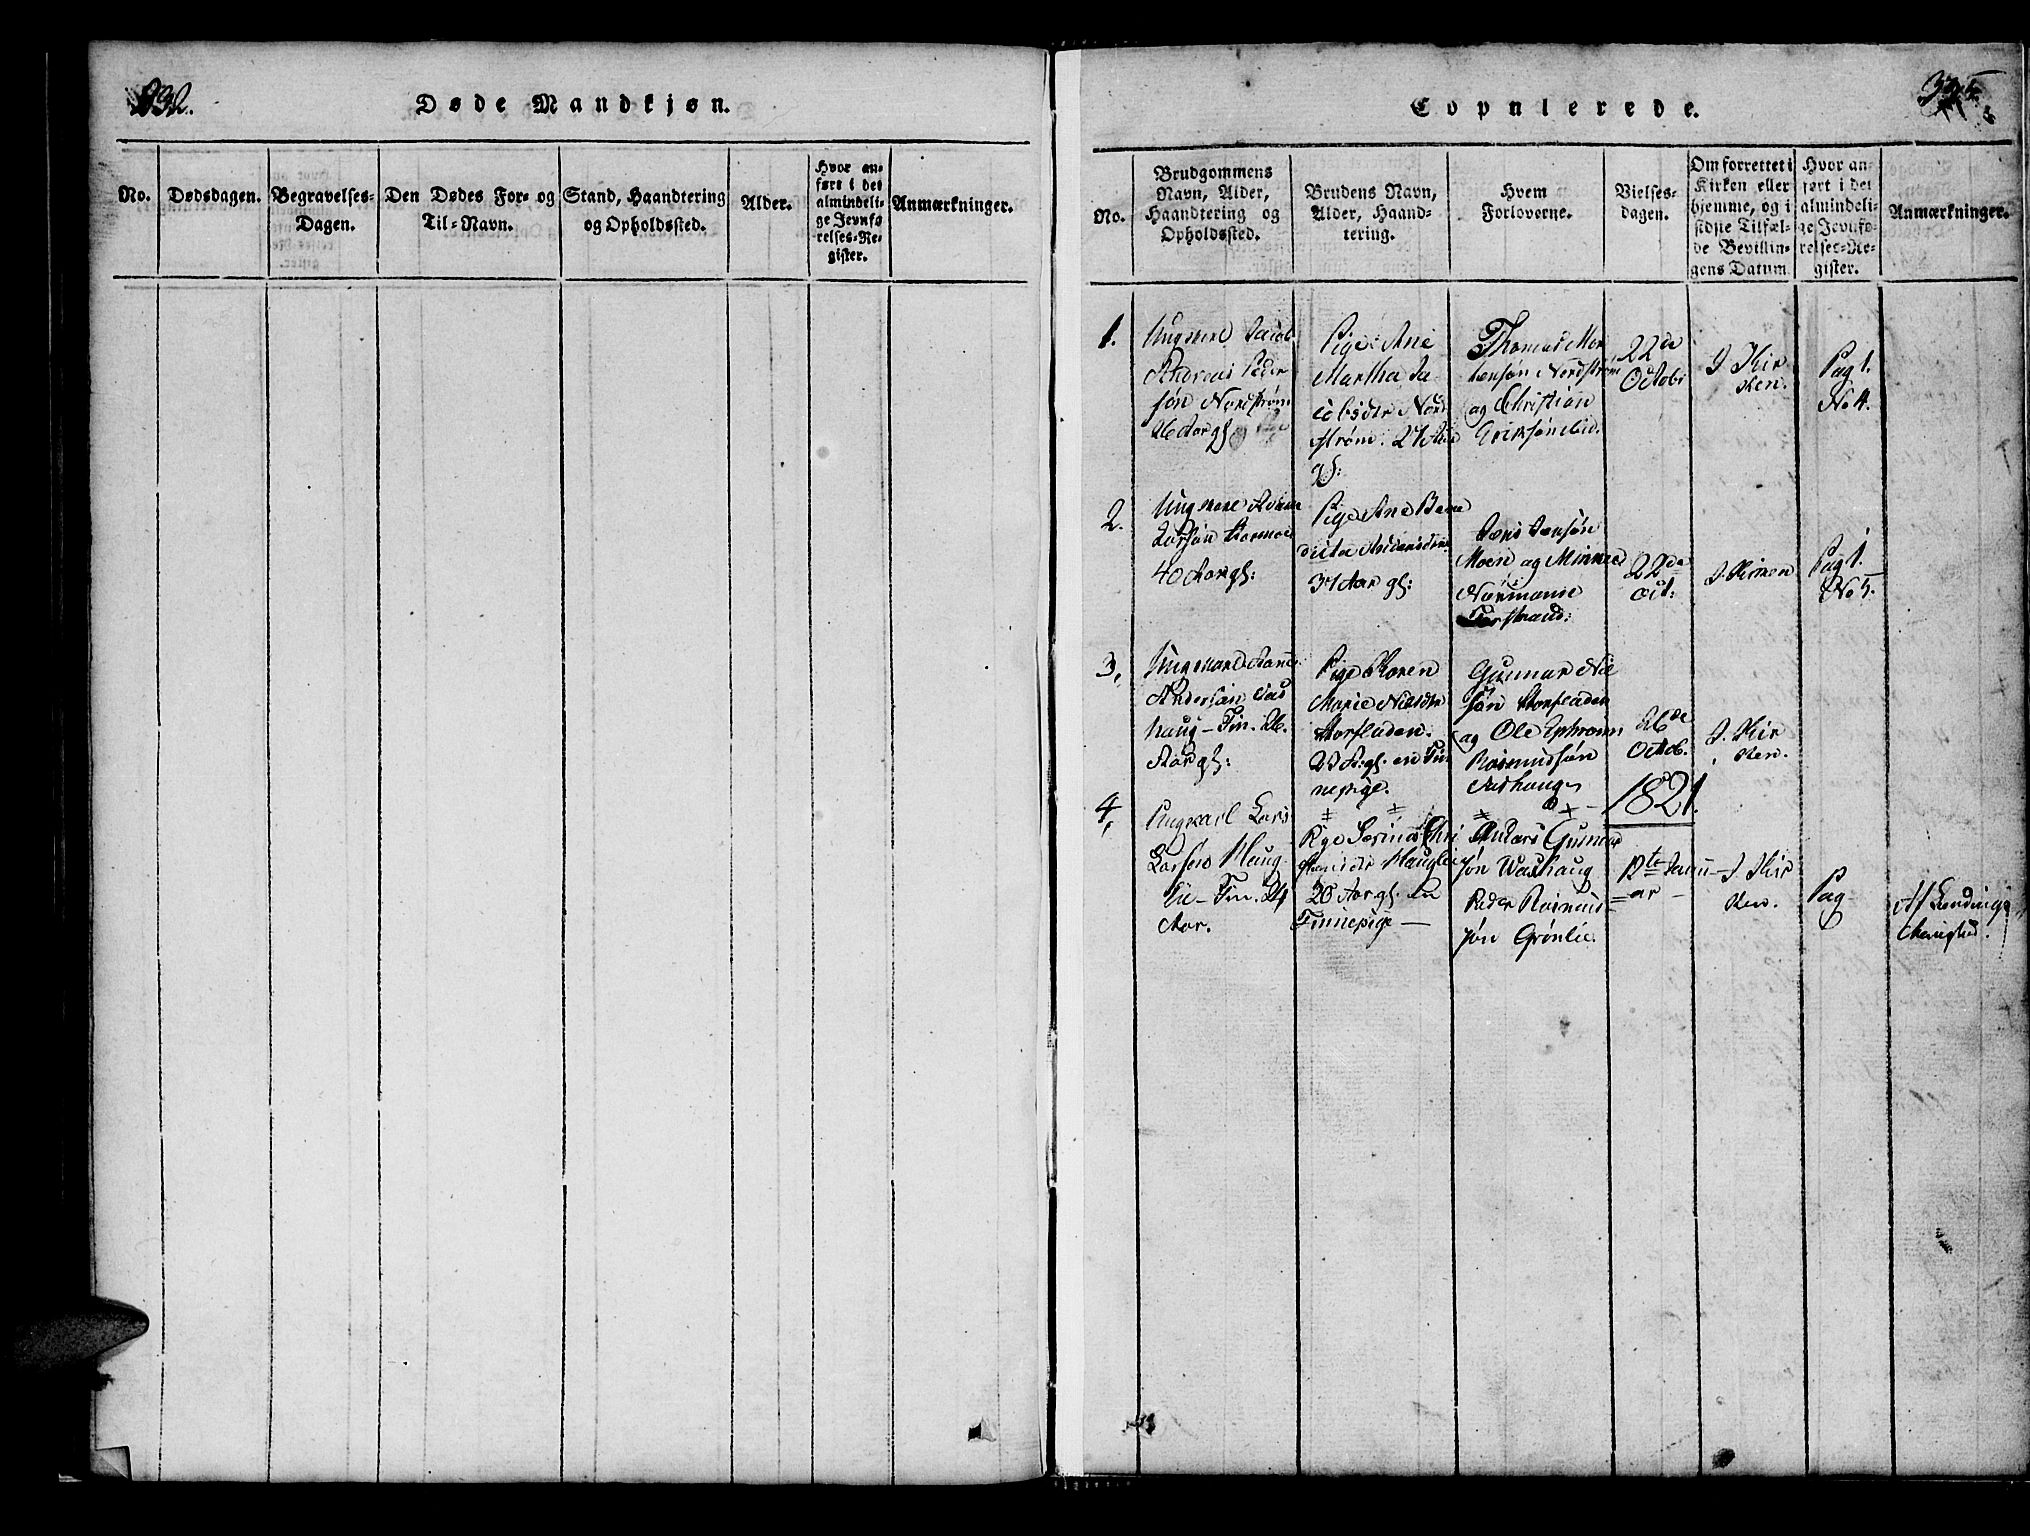 232.
Døde Mandkjøn.
No.
Dødsdagen.
Begravelses-
Dagen.
Den Dødes For- og
Til-Navn.
Stand, Haandtering
og Opholdssted.
Alder.
Hvor an-
ført i det
almindeli-
ge Jevnfø-
relses-Re-
gister.
Anmærkninger.
Copulerede.
No.
Brudgommens
Navn, Alder,
Haandtering og
Opholdssted.
Brudens Navn,
Alder, Haand-
tering.
Hvem
Forloverne.
Vielses-
dagen.
Om forrettet i
Kirken eller
hjemme, og i
sidste Tilfæl-
de Bevillin-
gens Datum.
Hvor an-
ført i det
almindeli-
ge Jevnfø-
relses-Re-
gister.
Anmærkninger.
1.
Ungkarl Jacob
Andreas Peder
søn Nordstrøm
26 Aar gl.
Pige Ane
Martha Ja
cobsdtr Nord
strøm. 27 Aar
gl:
Thomas Mor
tensøn Nordstrøm
og Christian
Erichsøn
22de
Octobr
I Kir
ken.
Pag 1.
No 4.
2.
Ungkarl
Larsøn
40 Aar gl:
Pige Ane Bene
dicta
37 Aar gl:
Jens Jensøn
Moen og
Normanie
22de
Oct:
I Kirken
Pag 1.
No 5.
3,
Ungkarl
Andersøn
haug - Fin. 26.
Aar gl:
Pige Karen
Marie Nielsdtr
Storfladen.
23 A. gl. en Fin
nepige.
Gunnar Niel
søn Storfladen
og Ole Ephraim
Rasmussøn
26de
Octob.
I Kir
ken.
1821.
4,
Ungkarl Lars
Larsen Haug
lie - Fin. 24
Aar.
Pige Serina Chri
stensdtr Hauglie
20 Aar gl. en
Finnepige —
Anders Gunnar
søn
Peder Rasmus
søn Grønlie.
12te Janu-
ar -
I Kir
ken.
Pag
Af